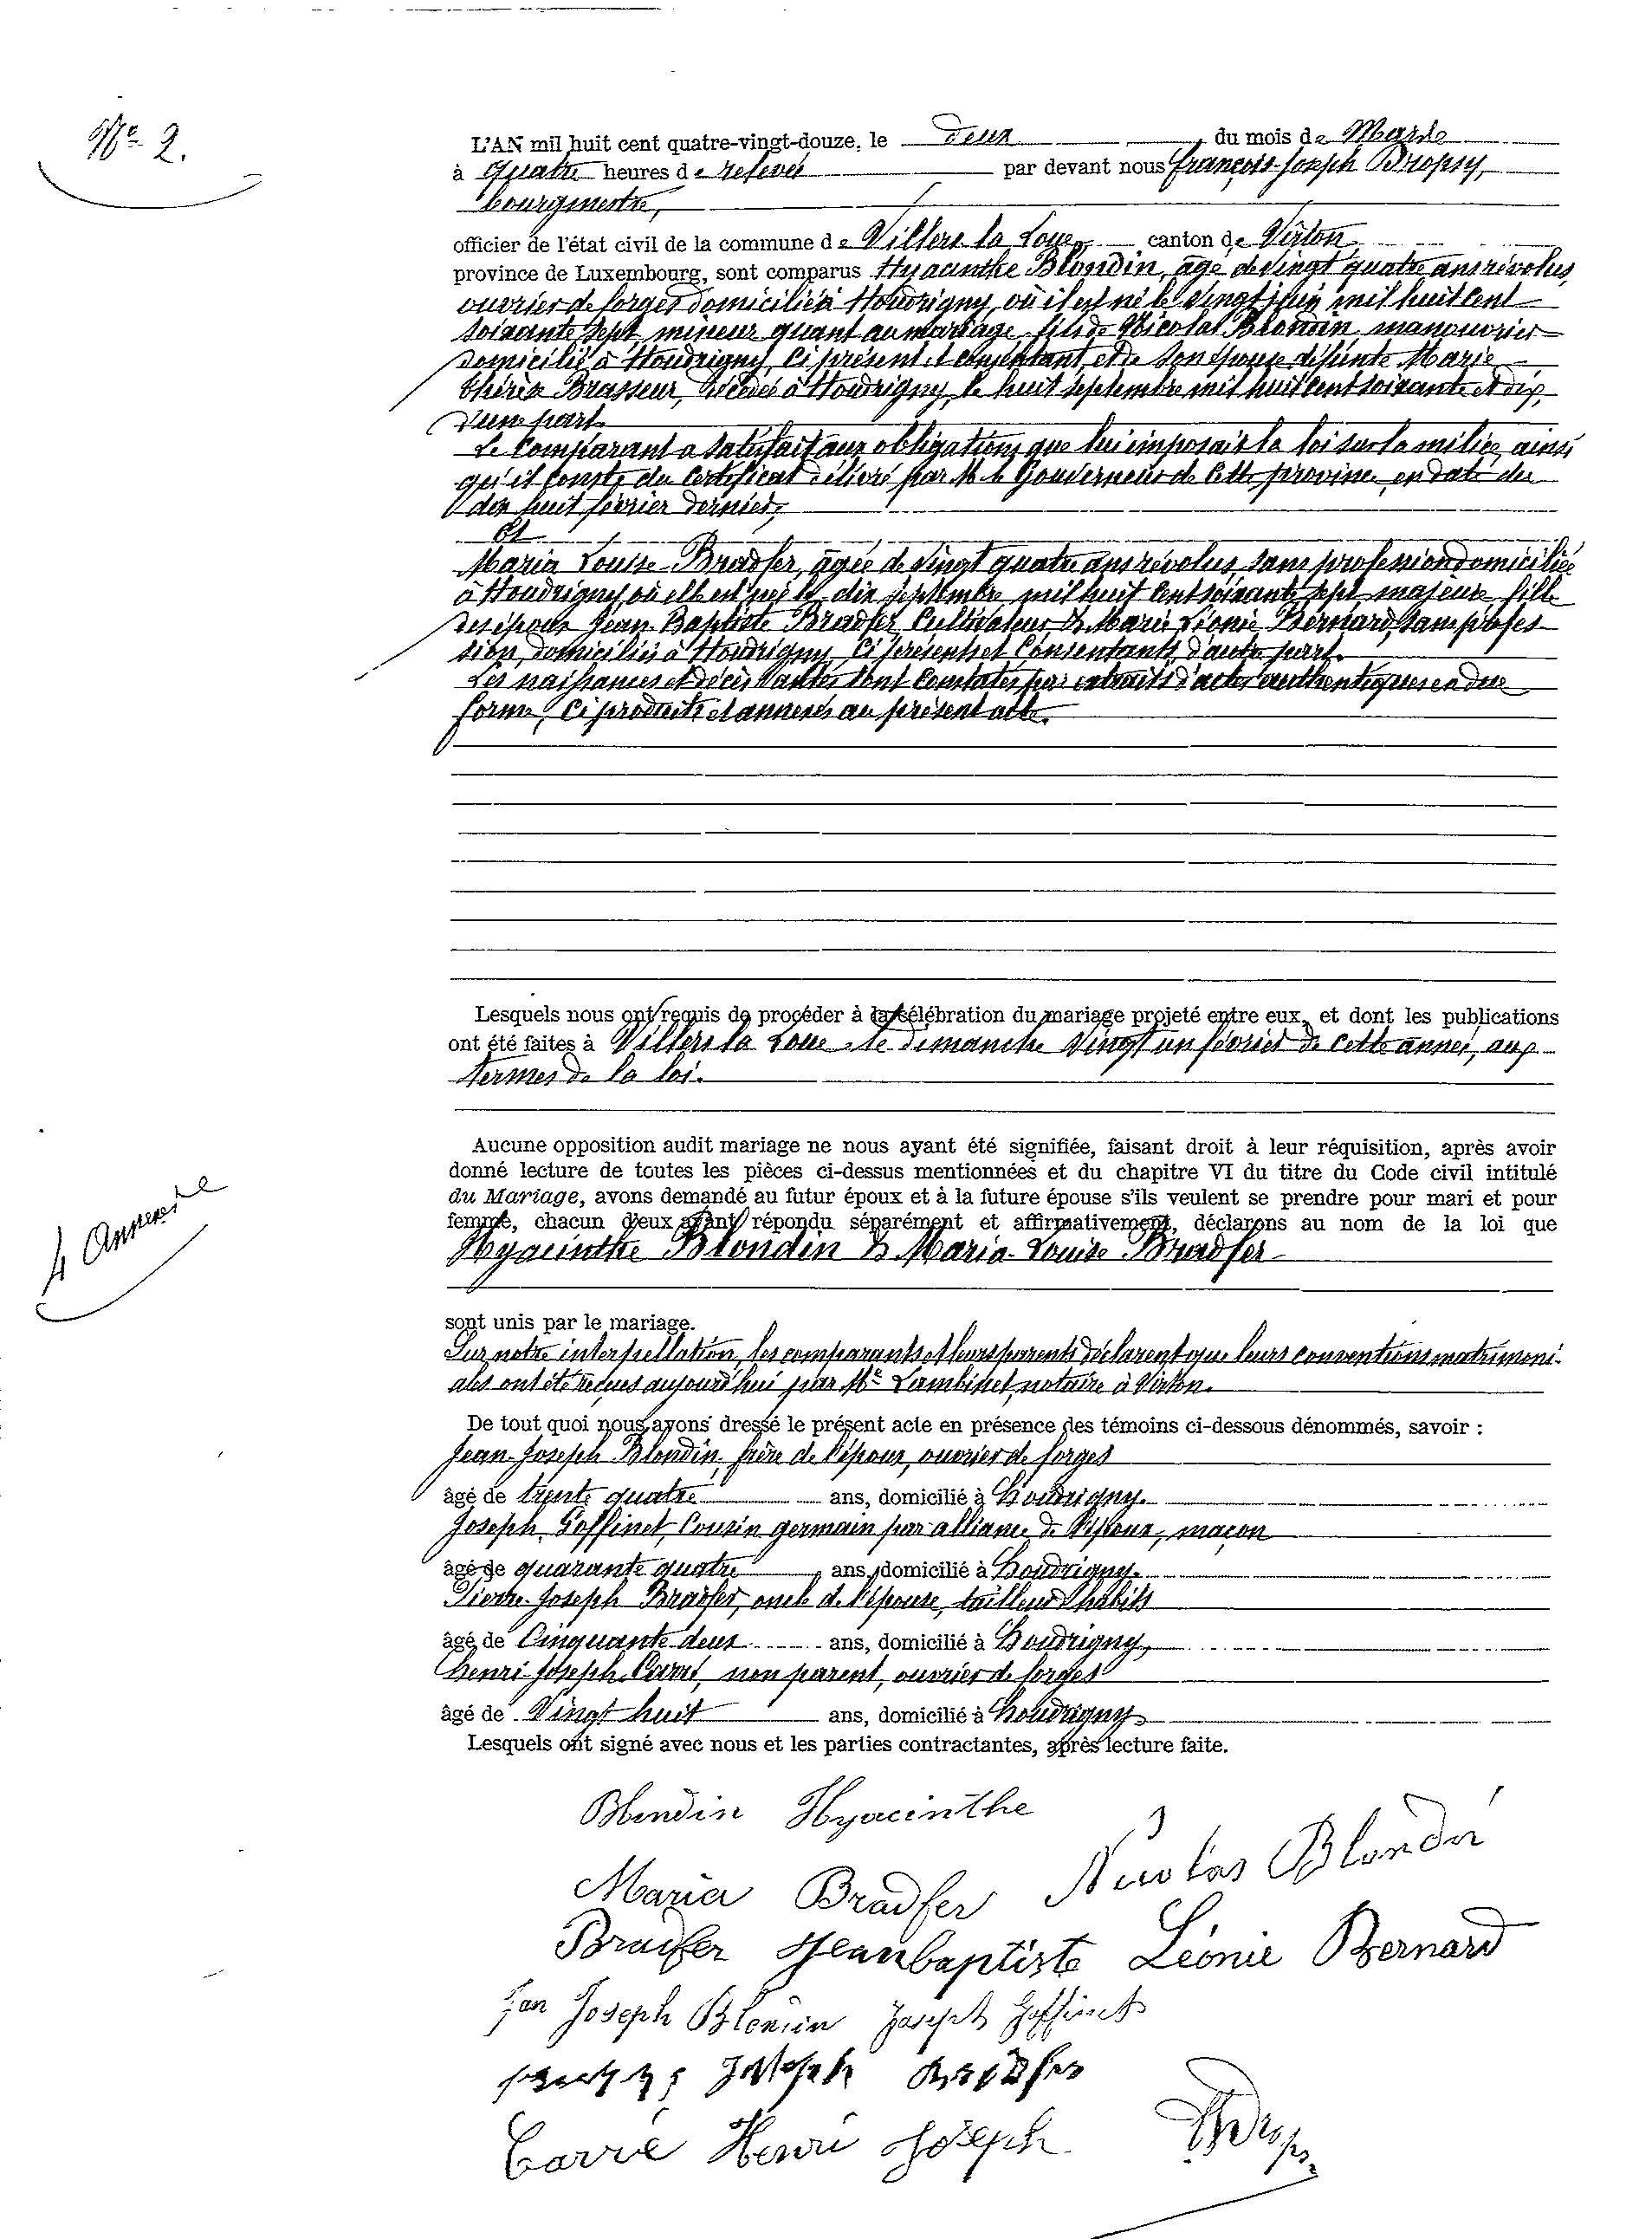 Nº 2.
L'AN mil huit cent quatre-vingt-douze, le deux du mois de Mars
à quatre heures de relevée par devant nous françois-Joseph Dropsy,
bourgmestre,
officier de l'état civil de la commune de Villers la Loue, canton de Virton
province de Luxembourg, sont comparus Hyacinthe Blondin, âgé de vingt quatre ans révolus,
ouvrier de forges domicilié à Houdrigny, où il est né le vingt juin mil huit cent
soixante sept, mineur quant au mariage, fils de Nicolas Blondin, manouvrier
domicilié à Houdrigny, ci présent et consentant, et de son épouse défunte Marie
thérèse Brasseur, décédée à Houdrigny, le huit septembre mil huit cent soixante et dix,
d'une part.
Le Comparant a satisfait aux obligations que lui imposait la loi sur la milice, ainsi
qu'il conste du certificat délivré par M. le Gouverneur de cette province, en date du
dix huit février dernier,
Et
Maria Louise Bradfer, âgée de vingt quatre ans révolus, sans profession domiciliée
à Houdrigny, où elle est née le dix septembre mil huit cent soixante sept, majeure, fille
des époux Jean-Baptiste Bradfer, Cultivateur & Marie Léonie Bernard, sans profes-
sion, domiciliés à Houdrigny, ci présents et Consentants, d'autre part.
Les naissances et décès vantés sont constatés par extraits d'actes authentiques en due
forme, ci produits et annexés au présent acte.
Lesquels nous ont requis de procéder à la célébration du mariage projeté entre eux, et dont les publications
ont été faites à Villers la Loue le dimanche vingt un février de cette année, aux
termes de la loi.
Aucune opposition audit mariage ne nous ayant été signifiée, faisant droit à leur réquisition, après avoir
donné lecture de toutes les pièces ci-dessus mentionnées et du chapitre VI du titre du Code civil intitulé
du Mariage, avons demandé au futur époux et à la future épouse s'ils veulent se prendre pour mari et pour
femme, chacun d'eux ayant répondu séparément et affirmativement, déclarons au nom de la loi que
4 Annexes
Hyacinthe Blondin & Maria Louise Bradfer
sont unis par le mariage.
Sur notre interpellation, les comparants et leurs parents déclarent que leurs conventions matrimoni-
ales ont été reçues aujourd'hui par Me Lambinet, notaire à Virton.
De tout quoi nous avons dressé le présent acte en présence des témoins ci-dessous dénommés, savoir :
Jean-Joseph Blondin, frère de l'époux, ouvrier de forges
âgé de trente quatre ans, domicilié à Houdrigny.
Joseph Goffinet, Cousin germain par alliance de l'époux, maçon
âgé de quarante quatre ans, domicilié à Houdrigny.
Pierre-Joseph Bradfer, oncle de l'épouse, tailleur d'habits
âgé de Cinquante deux ans, domicilié à Houdrigny,
henri-Joseph Carré, non parent, ouvrier de forges
âgé de Vingt huit ans, domicilié à houdrigny
Lesquels ont signé avec nous et les parties contractantes, après lecture faite.
Blondin Hyacinthe
Maria Bradfer Nicolas Blondin
Bradfer Jeanbaptiste Léonie Bernard
Jan Joseph Blondin Joseph Goffinet
Joseph Bradfer
Carré Henri Joseph